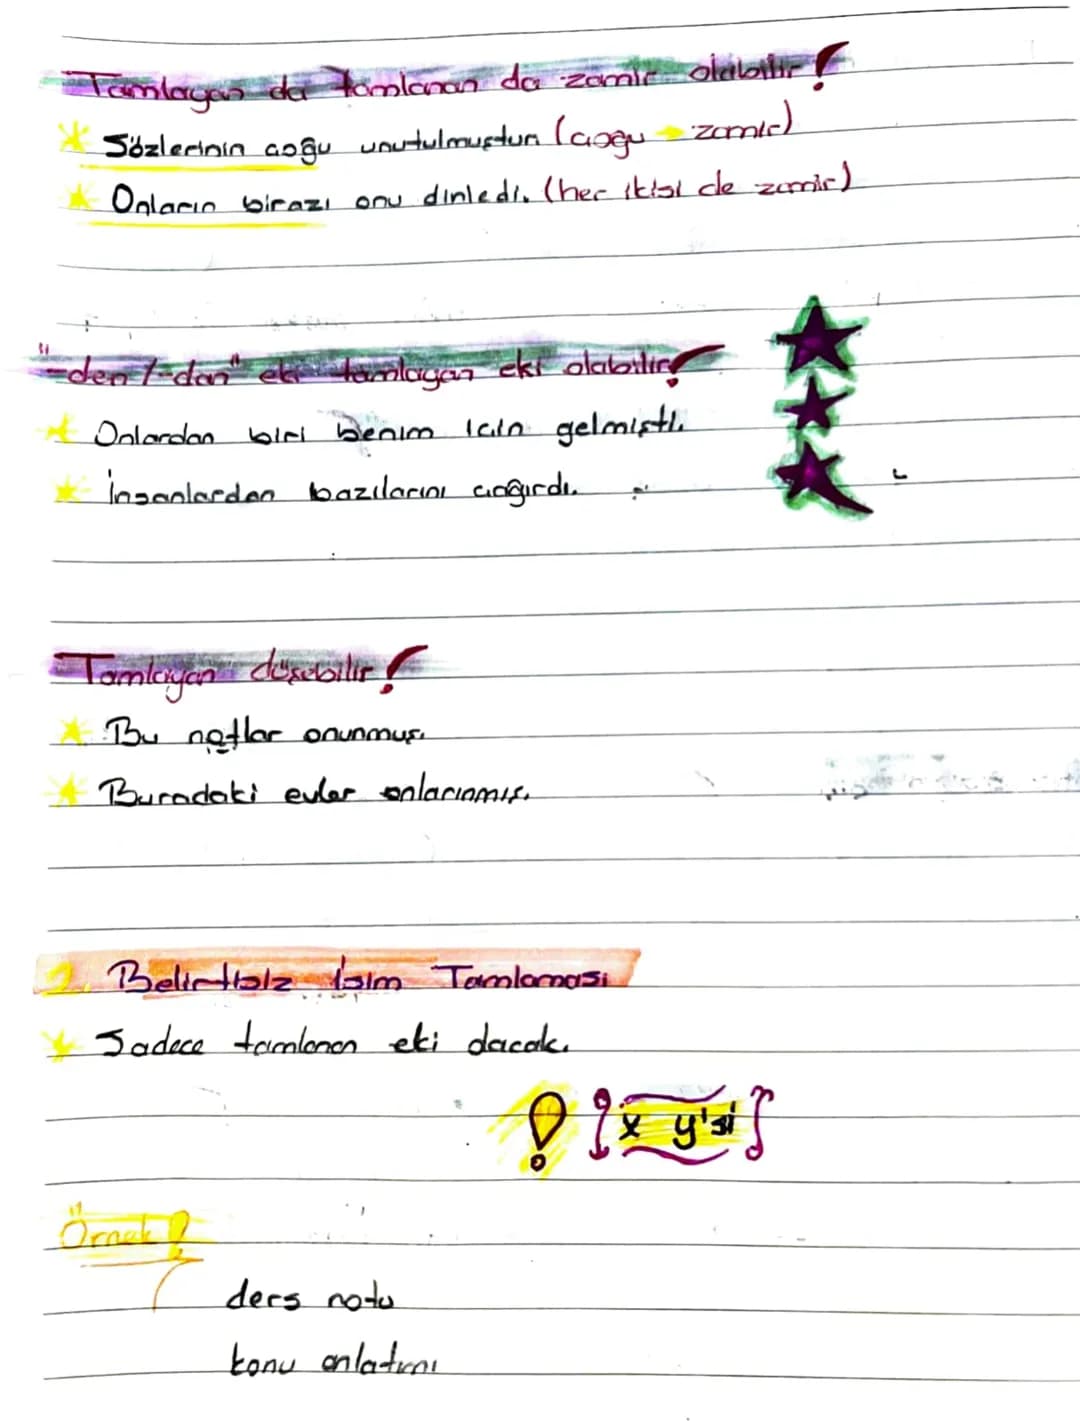 Tamlayan da tamlanan da zamir olabilir!
Sözlerinin çoğu unutulmuştun (çoğu → zamir)
Onların birazı onu dinledi. (her ikisi de zamir)
"-den/-dan" eki tamlayan eki olabilir!
Onlardan biri benim için gelmişti.
İnsanlardan bazılarını çağırdı.
Tamlayan düşebilir!
Bu notlar onunmuş.
Buradaki evler onlarınmış.
2. Belirtisiz İsim Tamlaması
Sadece tamlanan eki olacak.
! {x y'si}
Örnek!
ders notu
konu anlatımı